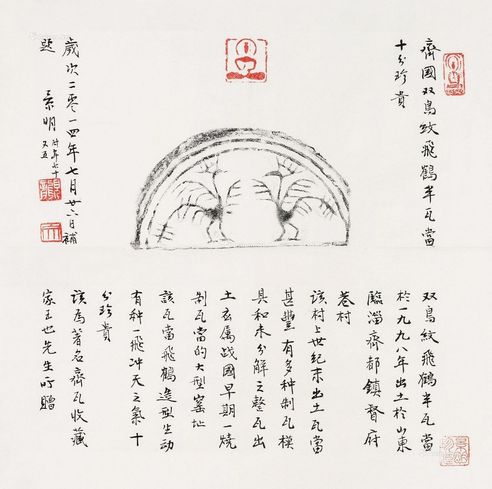 齊國双鳥紋飛鶴半瓦當
十分珍貴
歲次二零一四年七月廿六日補
題 景明 時年七十
又五
双鳥紋飛鶴半瓦當
於一九九八年出土於山東
臨淄齊都鎮督府
巷村
該村上世紀末出土瓦當
甚豐 有多种制瓦模
具和未分解之整瓦出
土 玄属战國早期一燒
制瓦當的大型窑址
該瓦當飛鶴造型生動
有种一飛冲天之氣 十
分珍貴
該為著名齊瓦收藏
家王也先生所贈